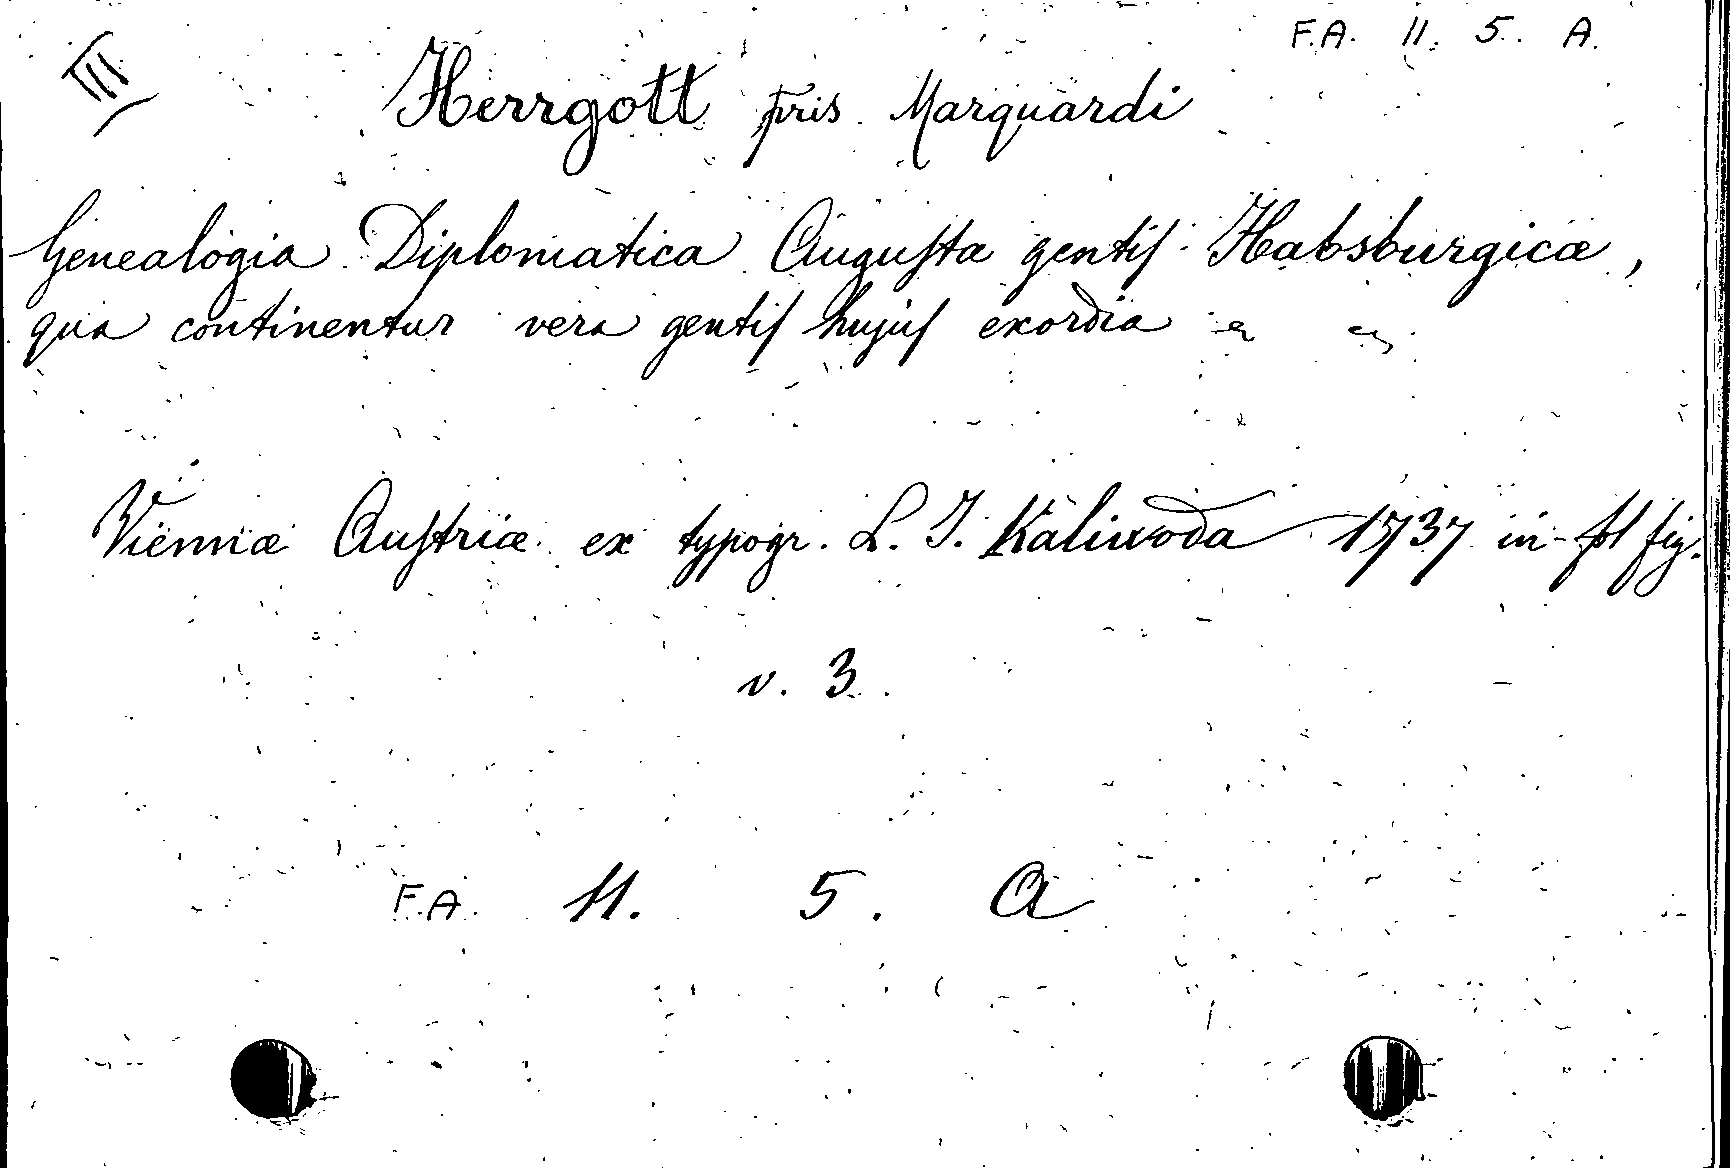 F.A. 11. 5. A.
III
Herrgott Fris Marquardi
Genealogia Diplomatica Auguſtæ gentiſ Habsburgicæ,
qua continentur vera gentiſ hujuſ exordia
Viennæ Auſtriæ ex typogr. L. J. Kaliwoda 1737 in-fol fig.
v. 3.
F.A. 11. 5. A